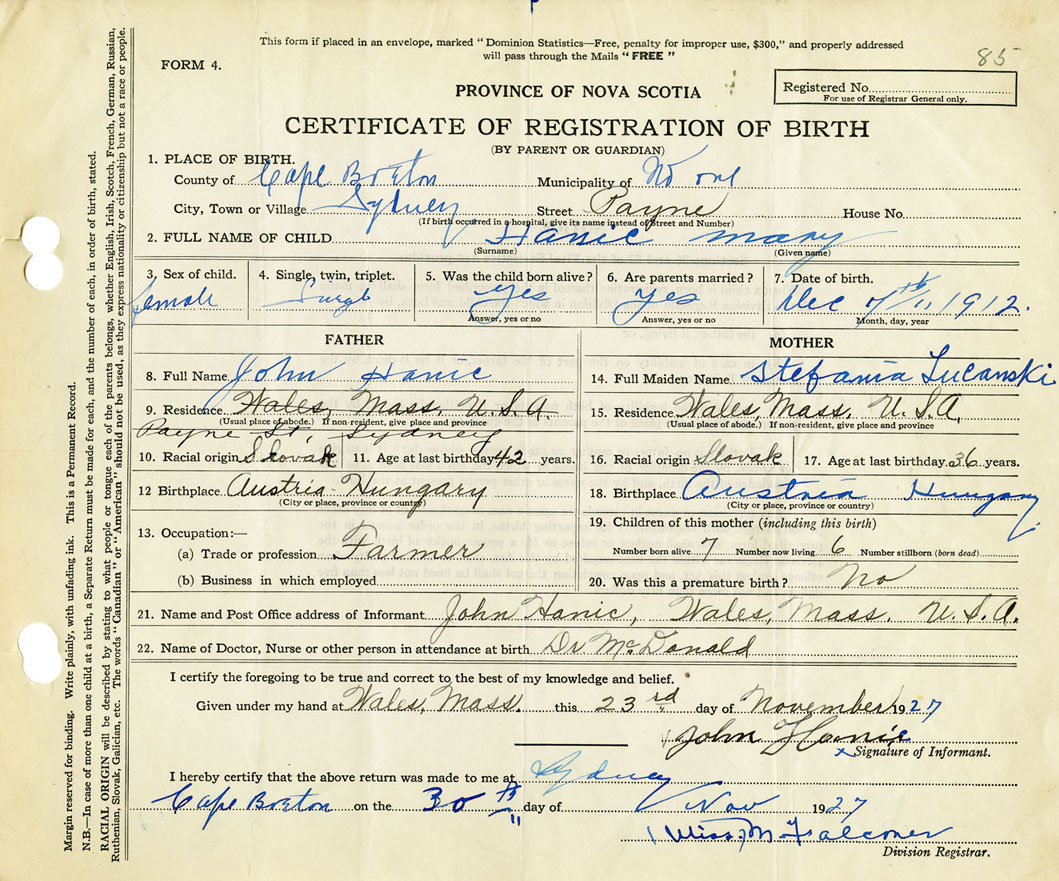 This form if placed in an envelope, marked "Dominion Statistics—Free, penalty for improper use, $300," and properly addressed
will pass through the Mails "FREE"
85
FORM 4.
Registered No.
For use of Registrar General only.
PROVINCE OF NOVA SCOTIA
CERTIFICATE OF REGISTRATION OF BIRTH
(BY PARENT OR GUARDIAN)
1. PLACE OF BIRTH.
County of Cape Breton Municipality of No one
City, Town or Village Sydney Street Payne House No.
(If birth occurred in a hospital, give its name instead of Street and Number)
2. FULL NAME OF CHILD Hanic Mary
(Surname) (Given name)
3, Sex of child. 4. Single, twin, triplet. 5. Was the child born alive? 6. Are parents married? 7. Date of birth.
female Single Yes Yes Dec 7th 1912.
Answer, yes or no Answer, yes or no Month, day, year
FATHER MOTHER
8. Full Name John Hanic 14. Full Maiden Name Stefania Lucanski
9. Residence Wales, Mass. U.S.A. 15. Residence Wales, Mass. U.S.A.
(Usual place of abode.) If non-resident, give place and province (Usual place of abode.) If non-resident, give place and province
Payne St., Sydney
10. Racial origin Slovak 11. Age at last birthday 42 years. 16. Racial origin Slovak 17. Age at last birthday 36 years.
12 Birthplace Austria-Hungary 18. Birthplace Austria Hungary
(City or place, province or country) (City or place, province or country)
13. Occupation:— 19. Children of this mother (including this birth)
(a) Trade or profession Farmer Number born alive 7 Number now living 6 Number stillborn (born dead)
(b) Business in which employed 20. Was this a premature birth? No
21. Name and Post Office address of Informant John Hanic, Wales, Mass. U.S.A.
22. Name of Doctor, Nurse or other person in attendance at birth Dr. McDonald
I certify the foregoing to be true and correct to the best of my knowledge and belief.
Given under my hand at Wales, Mass. this 23rd day of November 1927
John Hanic
x Signature of Informant.
I hereby certify that the above return was made to me at Sydney
Cape Breton on the 30th day of Nov 1927
(Miss) M. Falconer
Division Registrar.
Margin reserved for binding. Write plainly, with unfading ink. This is a Permanent Record.
N.B.—In case of more than one child at a birth, a Separate Return must be made for each, and the number of each, in order of birth, stated.
RACIAL ORIGIN will be described by stating to what people or tongue each of the parents belongs, whether English, Irish, Scotch, French, German, Russian,
Ruthenian, Slovak, Galician, etc. The words "Canadian" or "American" should not be used, as they express nationality or citizenship but not a race or people.